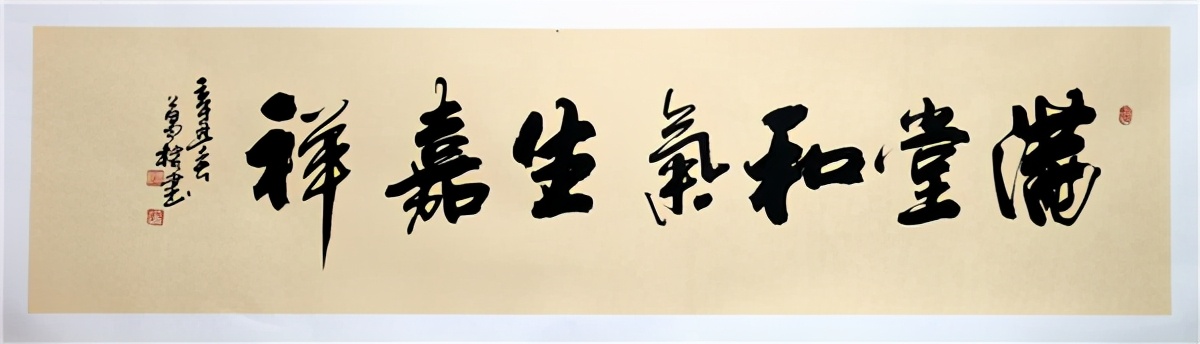 滿堂和氣生嘉祥
辛丑春
書